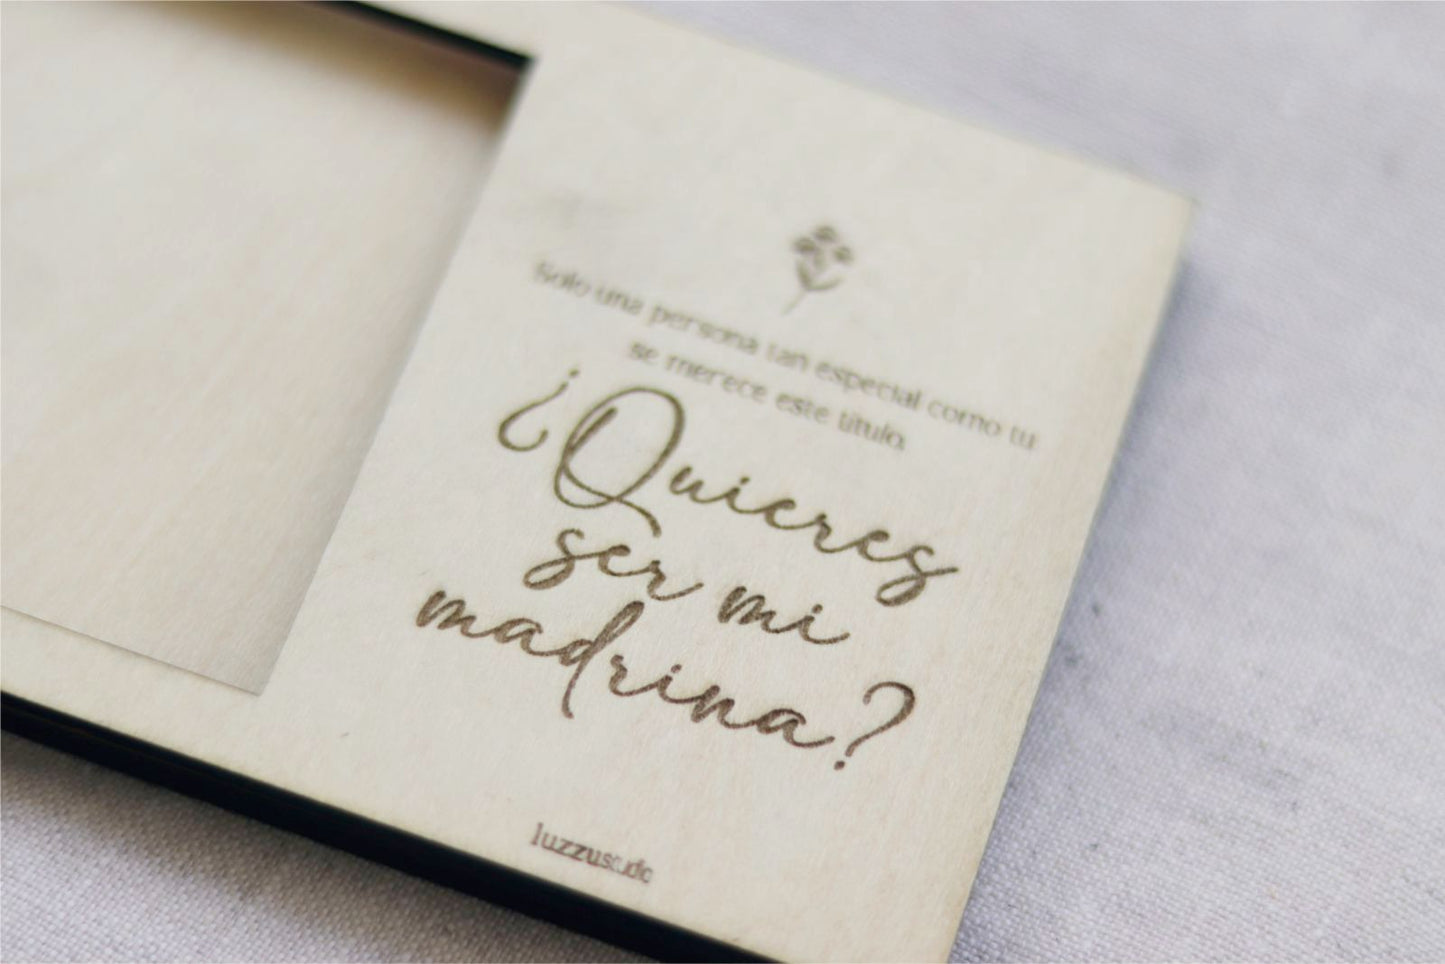 Solo una persona tan especial como tu
se merece este titulo.
¿Quieres
ser mi
madrina?
luzzustudio